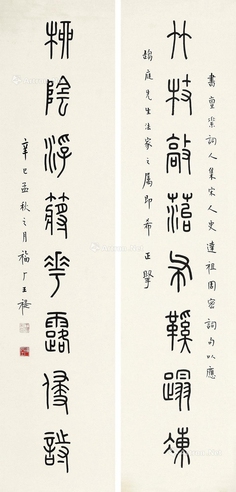 竹枝敲落鞵蹋凍
書亶素詞人集宋人史達祖周密詞句以應
庭先生法家之屬即希 正擘
柳陰浮花露侵詩
辛巳孟秋之月福厂王禔